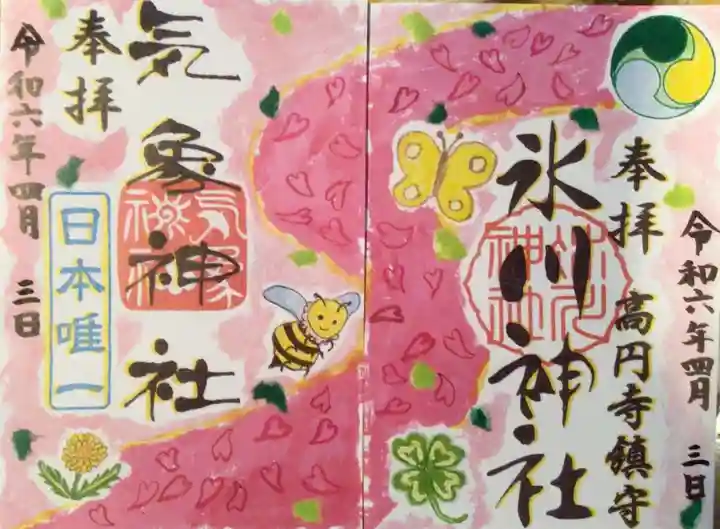 氷川神社
奉拝 高円寺鎮守
令和六年四月 三日
気象神社
奉拝
日本唯一
令和六年四月 三日